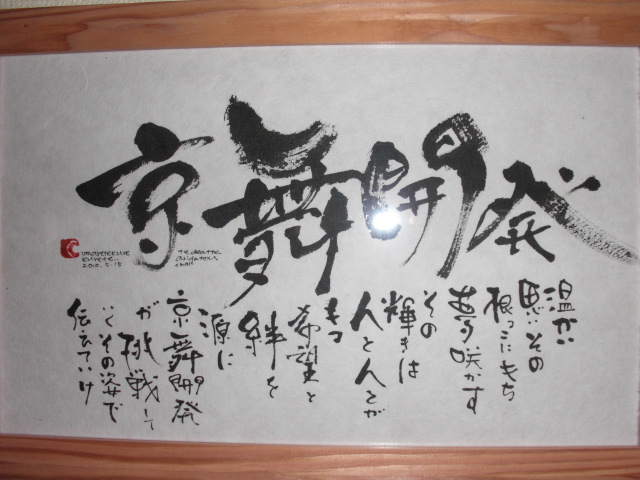 京舞開発
温かい
思いその
根っこにもち
夢咲かす
その
輝きは
人と人とが
もつ
希望と
絆を
源に
京舞開発
が挑戦して
いくその姿で
伝えていけ
2010.5.15